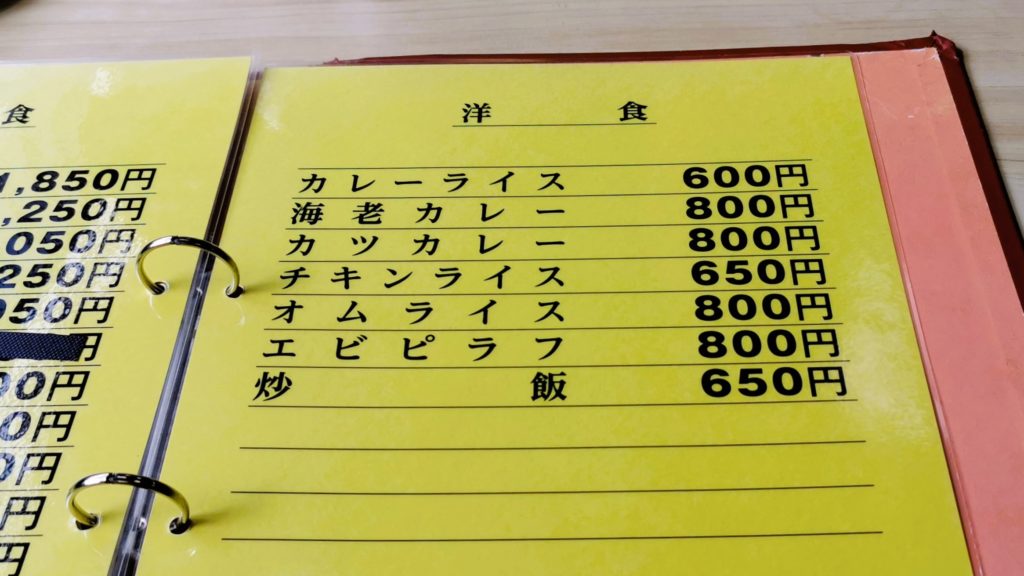 食
1,850円
,250円
050円
250円
950円
円
90円
0円
0円
円
円
洋食
カレーライス 600円
海老カレー 800円
カツカレー 800円
チキンライス 650円
オムライス 800円
エビピラフ 800円
炒飯 650円